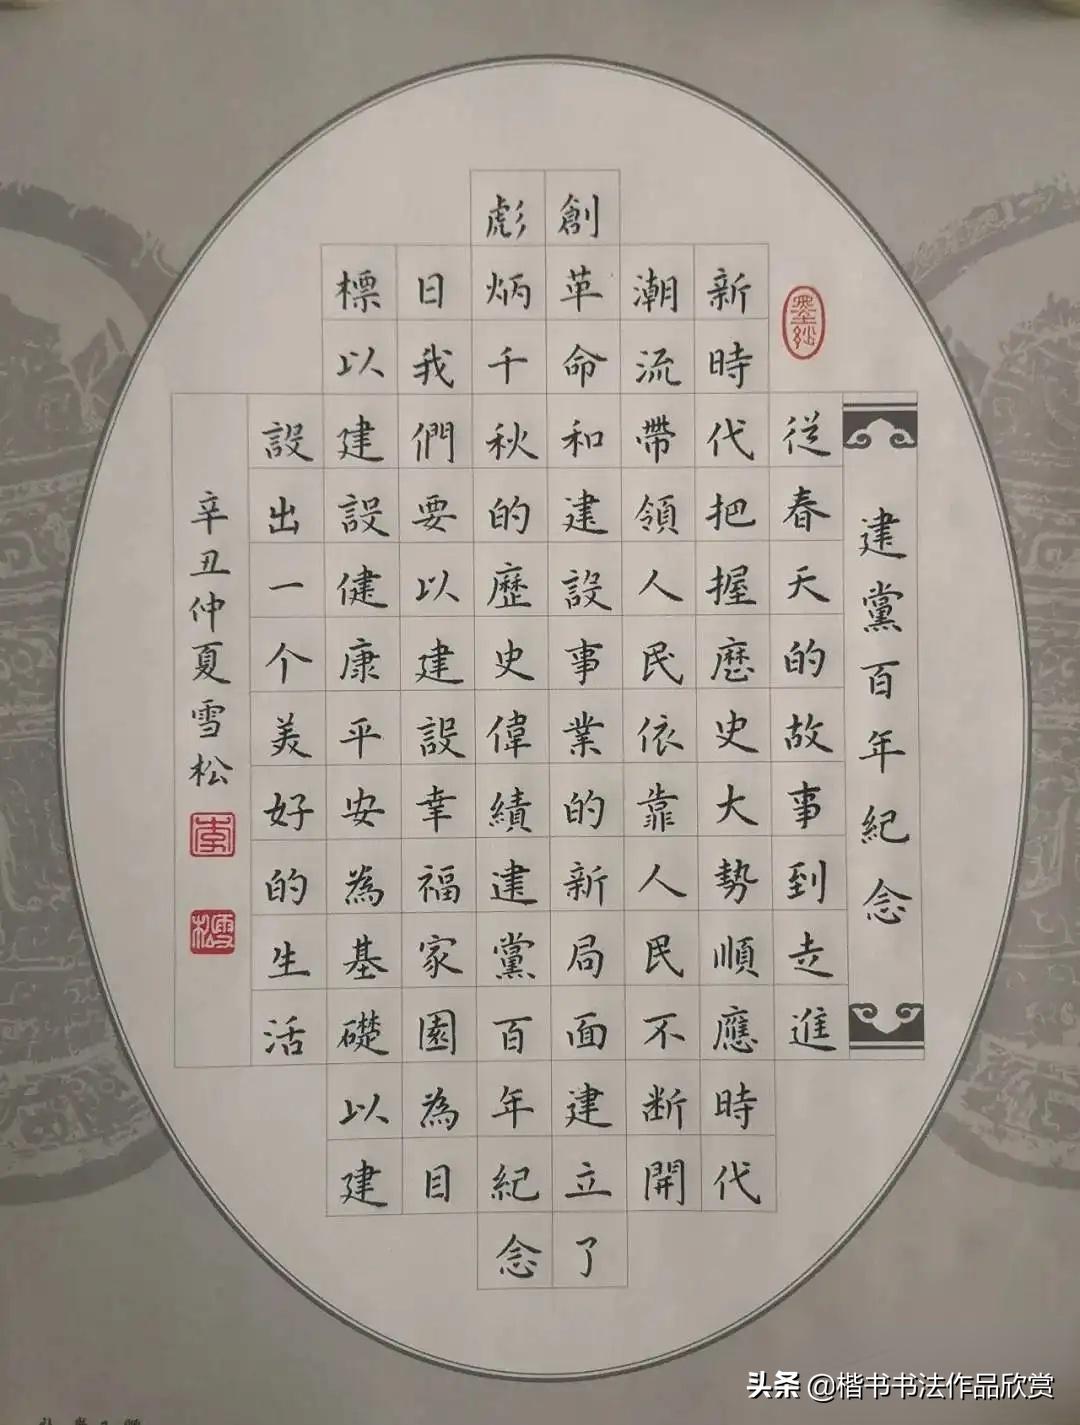 建黨百年紀念
從春天的故事到走進
新時代把握歷史大勢順應時代
潮流帶領人民依靠人民不断開
創革命和建設事業的新局面建立了
彪炳千秋的歷史偉績建黨百年紀念
日我們要以建設幸福家園為目
標以建設健康平安為基礎以建
設出一个美好的生活
辛丑仲夏雪松
頭条 @楷书书法作品欣赏